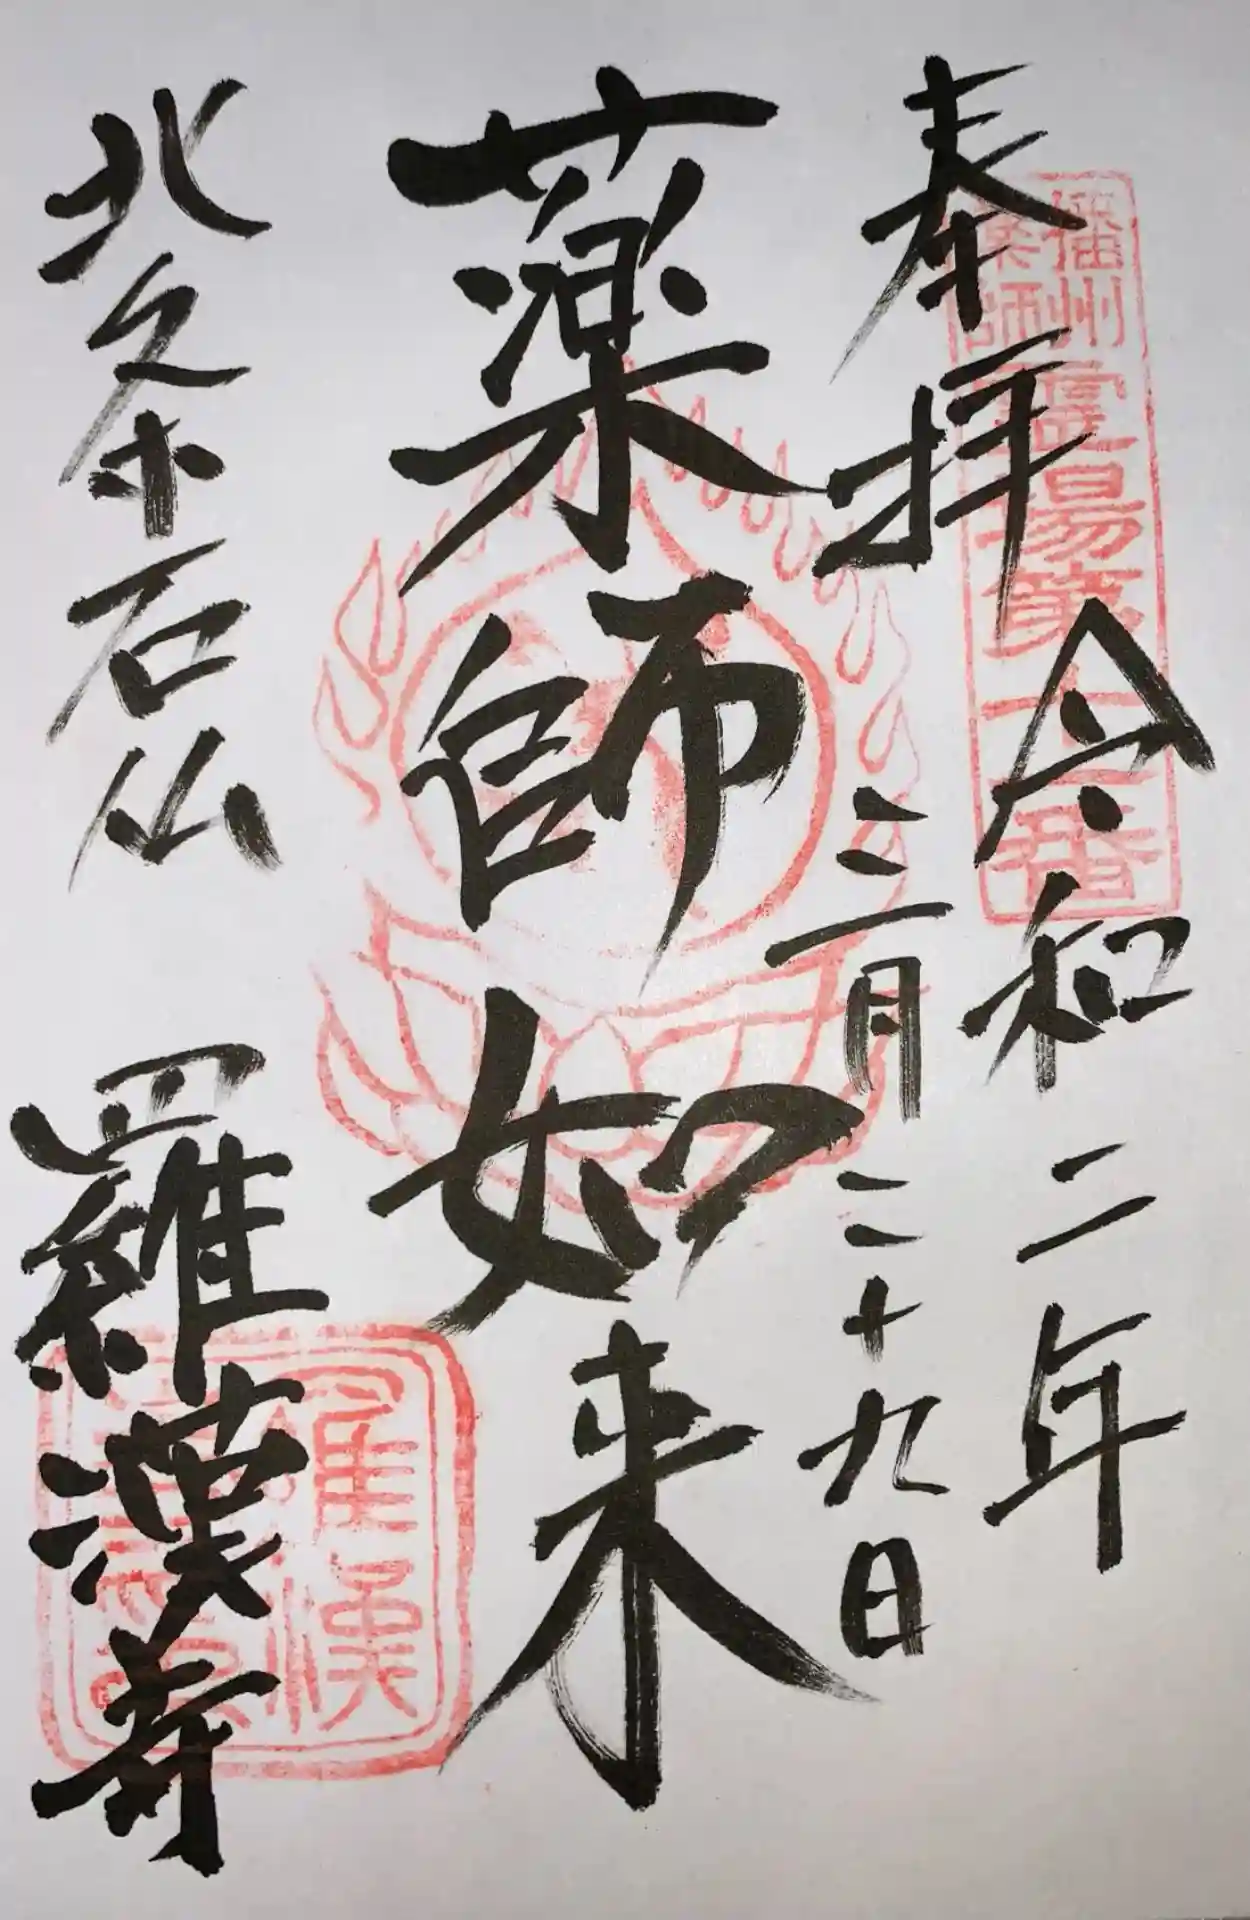 奉拝
令和二年
三月二十九日
薬師如来
北条石仏
羅漢寺
播州
薬師
霊場第
番
羅漢